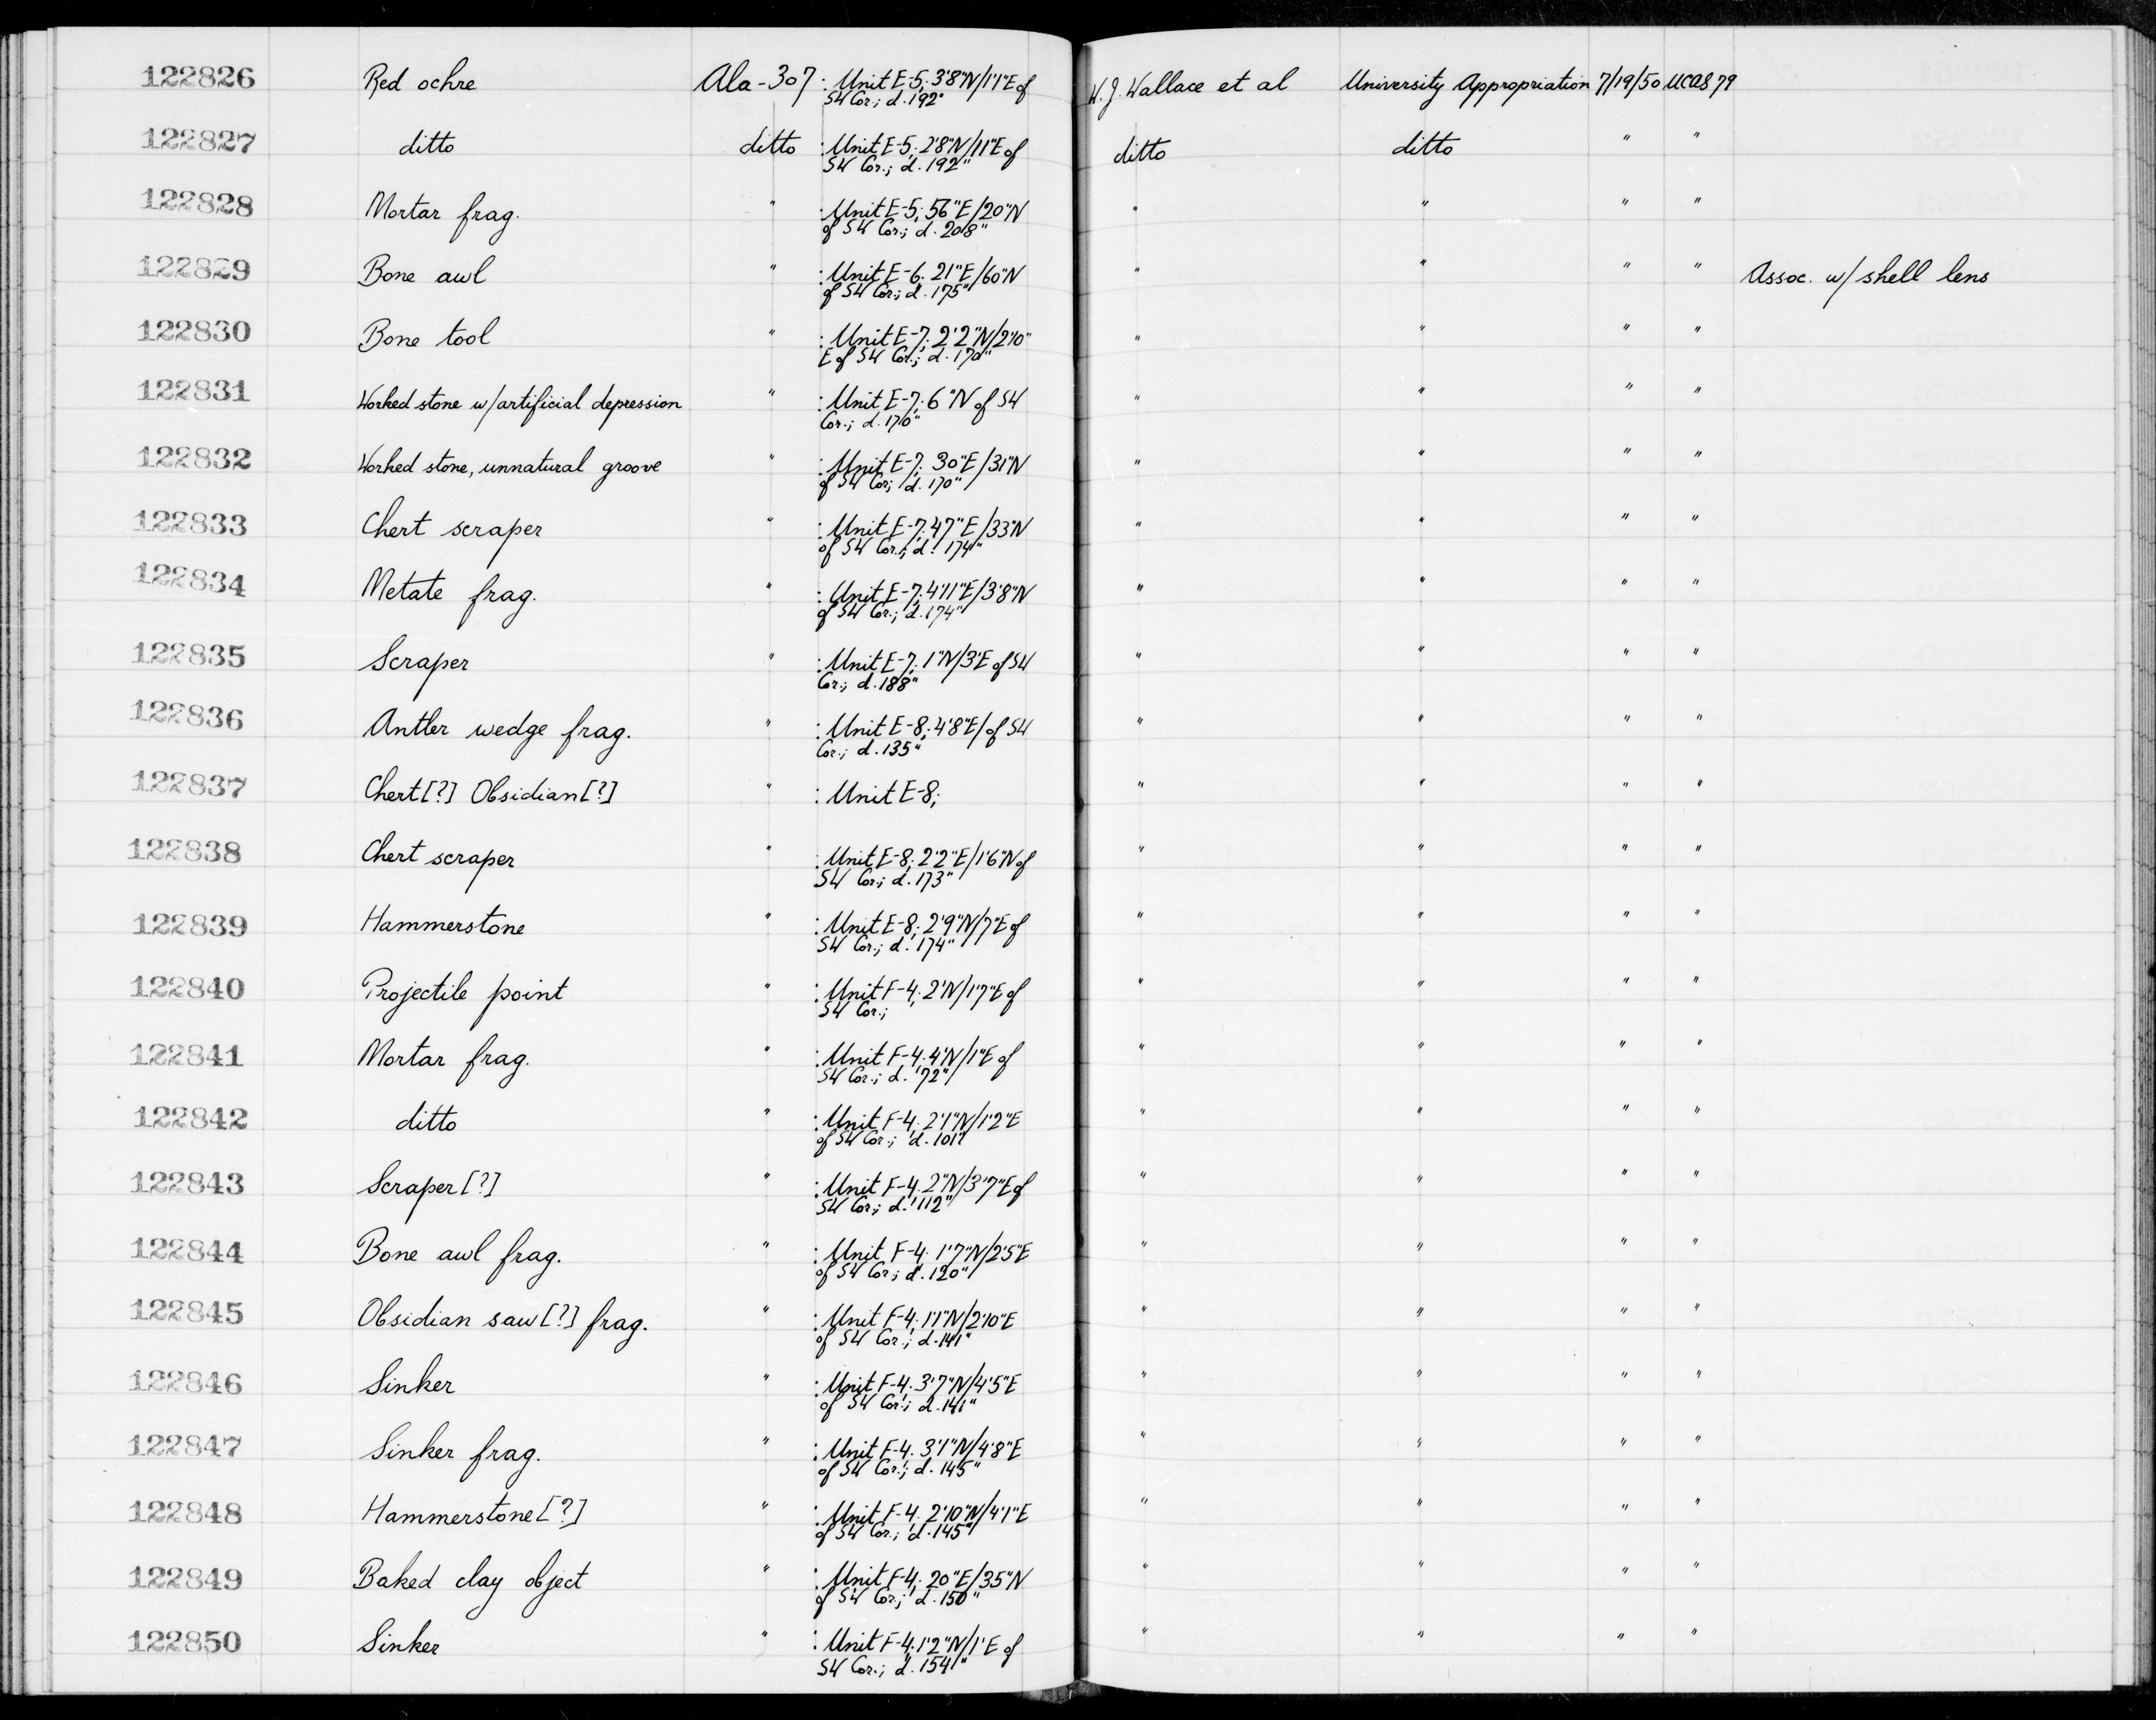 122826 Red ochre Ala-307 : Unit E-5; 3'8"N/1'1"E of W.J. Wallace et al University Appropriation 7/19/50 UCAS 79
SW Cor.; d. 192"
122827 ditto ditto : Unit E-5; 2'8"N/11"E of ditto ditto " "
SW Cor.; d. 192"
122828 Mortar frag. " : Unit E-5; 56"E/20"N " " " "
of SW Cor.; d. 208"
122829 Bone awl " : Unit E-6; 21"E/60"N " " " " Assoc. w/ shell lens
of SW Cor.; d. 175"
122830 Bone tool " : Unit E-7; 2'2"N/2'10" " " " "
E of SW Cor.; d. 170"
122831 Worked stone w/artificial depression " : Unit E-7; 6"N of SW " " " "
Cor.; d. 170"
122832 Worked stone, unnatural groove " : Unit E-7; 30"E/31"N " " " "
of SW Cor; d. 170"
122833 Chert scraper " : Unit E-7; 47"E/33"N " " " "
of SW Cor.; d. 174"
122834 Metate frag. " : Unit E-7; 4'11"E/3'8"N " " " "
of SW Cor.; d. 174"
122835 Scraper " : Unit E-7; 1"N/3'E of SW " " " "
Cor.; d. 188"
122836 Antler wedge frag. " : Unit E-8; 4'8"E/of SW " " " "
Cor.; d. 135"
122837 Chert[?] Obsidian[?] " : Unit E-8; " " " "
122838 Chert scraper " : Unit E-8; 2'2"E/1'6"N of " " " "
SW Cor.; d. 173"
122839 Hammerstone " : Unit E-8; 2'9"N/7"E of " " " "
SW Cor.; d. 174"
122840 Projectile point " : Unit F-4; 2'N/1'7"E of " " " "
SW Cor.;
122841 Mortar frag. " : Unit F-4; 4'N/1"E of " " " "
SW Cor.; d. 72"
122842 ditto " : Unit F-4; 2'1"N/1'2"E " " " "
of SW Cor.; d. 101"
122843 Scraper[?] " : Unit F-4; 2"N/3'7"E of " " " "
SW Cor.; d. 112"
122844 Bone awl frag. " : Unit F-4; 1'7"N/2'5"E " " " "
of SW Cor; d. 120"
122845 Obsidian saw[?] frag. " : Unit F-4; 1'1"N/2'10"E " " " "
of SW Cor.; d. 141"
122846 Sinker " : Unit F-4; 3'7"N/4'5"E " " " "
of SW Cor.; d. 141"
122847 Sinker frag. " : Unit F-4; 3'1"N/4'8"E " " " "
of SW Cor.; d. 145"
122848 Hammerstone[?] " : Unit F-4; 2'10"N/4'1"E " " " "
of SW Cor.; d. 145"
122849 Baked clay object " : Unit F-4; 20"E/35"N " " " "
of SW Cor.; d. 150"
122850 Sinker " : Unit F-4; 1'2"N/1'E of " " " "
SW Cor.; d. 154"